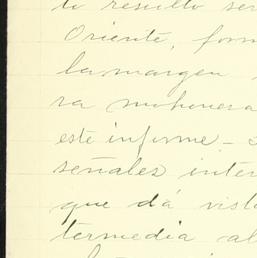 to resultó ser
Oriente, for
la margen
ra mohonera
este informe -
señales inter
que dá vist
termedia al